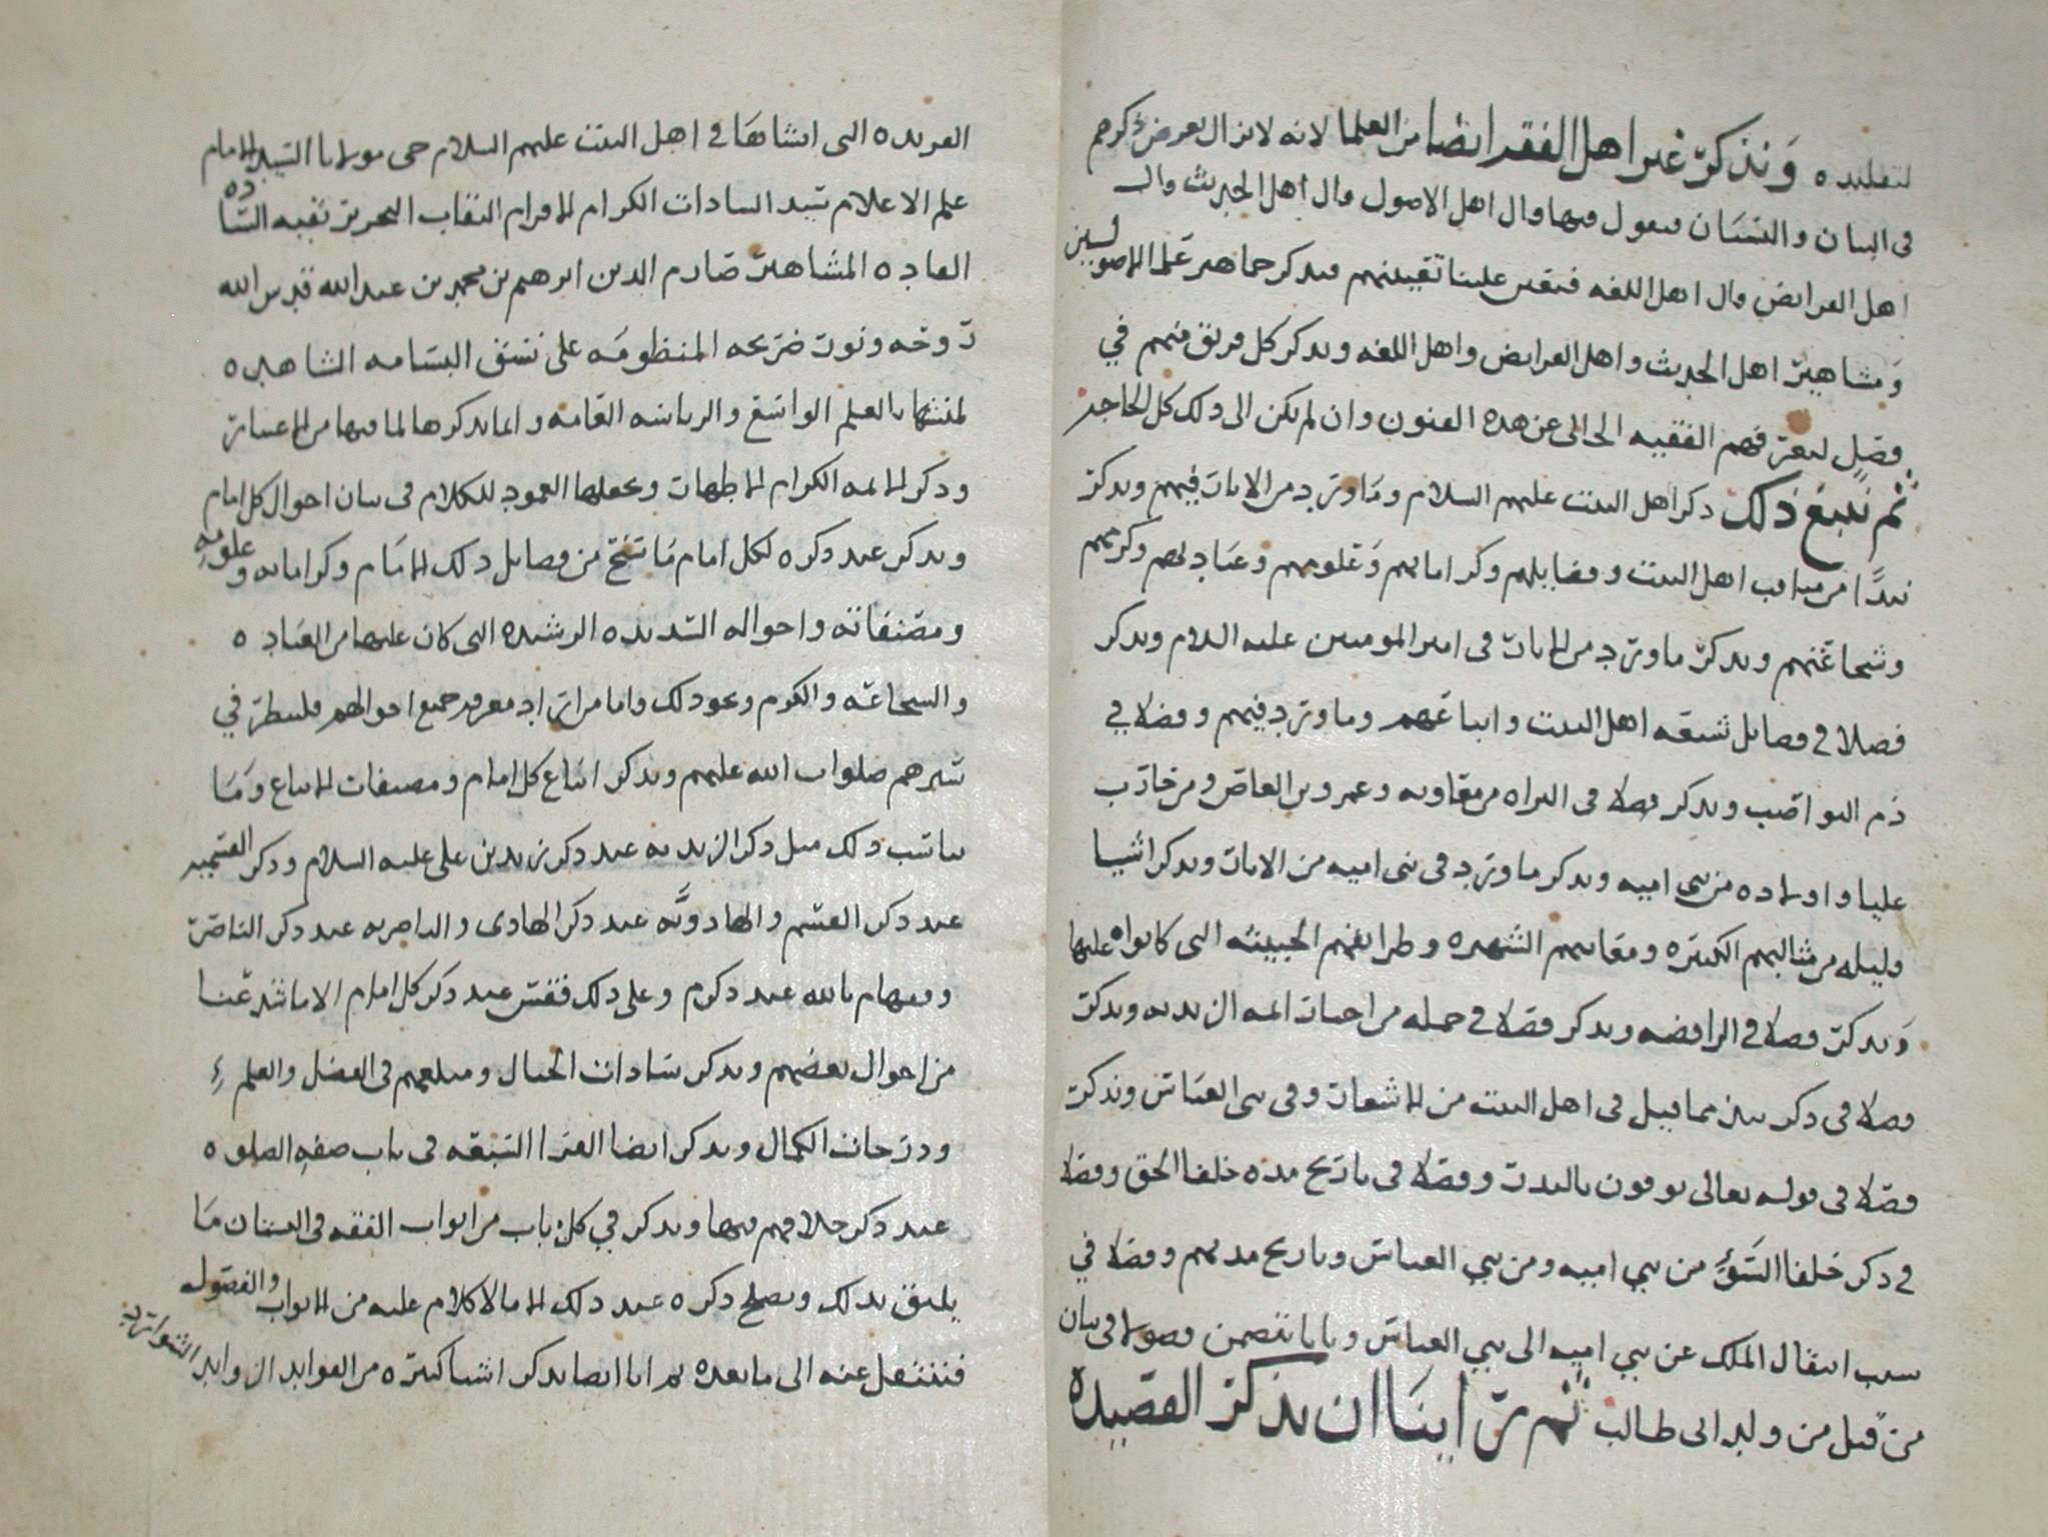 لتقليده ونذكر غير اهل الفقه ايضا من العلما لانه لا يزال يعرض ذكرهم
في البيان والبستان فيقول فيها قال اهل الاصول قال اهل الحديث قال
اهل الفرايض قال اهل اللغه فتعين علينا تعيينهم فيذكر جماهير علما الاصوليين
ومشاهير اهل الحديث واهل الفرايض واهل اللغه ويذكر كل فريق منهم في
فصل ليعرفهم الفقيه الخالى عن هذه الفنون وان لم يكن الى ذلك كل الحاجه
ثم نتبع ذلك ذكر اهل البيت عليهم السلام وما ورد من الايات فيهم ويذكر
نبذا من مناقب اهل البيت وفضايلهم وكراماتهم وعلومهم وعبادتهم وكرمهم
وشجاعتهم ويذكر ما ورد من الايات في امير المومنين عليه السلام ويذكر
فصلا في فضايل شيعه اهل البيت واتباعهم وما ورد فيهم وفصلا في
ذم النواصب ويذكر فصلا في البراه من معاويه وعمرو بن العاص ومن حارب
عليا واولاده من بني اميه ويذكر ما ورد في بني اميه من الايات ويذكر اشيا
قليله من مثالبهم الكثيره ومعايبهم الشهيره وطرايقهم الخبيثه التي كانوا عليها
ويذكر فصلا في الرافضه ويذكر فصلا في جمله من اجبارات ايمه الزيديه ويذكر
فصلا في ذكر شي مما قيل في اهل البيت من الاشعار وفي بني العباس ونذكر
فصلا في قوله تعالى يوفون بالنذر وفصلا في تاريخ مده خلفا الحق وفصلا
في ذكر خلفا السوء من بني اميه ومن بني العباس وتاريخ مدتهم وفصلا في
سبب انتقال الملك عن بني اميه الى بني العباس وبابا يتضمن فصولا في بيان
من قتل من ولد ابي طالب ثم راينا ان نذكر القصيده
الفريده التي انشاها في اهل البيت عليهم السلام حي مولانا السيد الامام
علم الاعلام سيد السادات الكرام النقاب النحرير بقيه الساده
القاده المشاهير صارم الدين ابرهيم بن محمد بن عبد الله قدس الله
روحه ونور ضريحه المنظومه على نسق البسامه الشاهده
لمنشها بالعلم الواسع والرياسه العامه وانما نذكرها لما فيها من الاعتبار
وذكر الايمه الكرام الاطهار ونجعلها العمود للكلام في بيان احوال كل امام
ويذكر عند ذكره لكل امام ما سنح من فضايل ذلك الامام وكراماته وعلومه
ومصنفاته واحواله السديده الرشيده التي كان عليها من العباده
والشجاعه والكرم ونحو ذلك واما من اراد معرفه جميع احوالهم فلينظر في
سيرهم صلوات الله عليهم ويذكر اتباع كل امام ومصنفات الاتباع وما
يناسب ذلك مثل ذكر الزيديه عند ذكر زيد بن علي عليه السلام وذكر القسميه
عند ذكر القسم والهادويه عند ذكر الهادى والناصريه عند ذكر الناصر
وفقهاهم بالله عند ذكرهم وعلى ذلك فقس عند ذكر كل امام الا ما شذ عنا
من احوال بعضهم ويذكر سادات الجبال ومبلغهم في الفضل والعلم
ودرجات الكمال ويذكر ايضا القرا السبعه في باب صفه الصلوه
عند ذكر خلافهم فيها ويذكر في كل باب من ابواب الفقه في البستان ما
يليق بذلك ويصلح ذكره عند ذلك الا ما لا كلام عليه من الابواب والفصول
فننتقل عنه الى ما بعده ثم انا ايضا نذكر اشيا كثيره من الفوايد الزوايد الشوارد